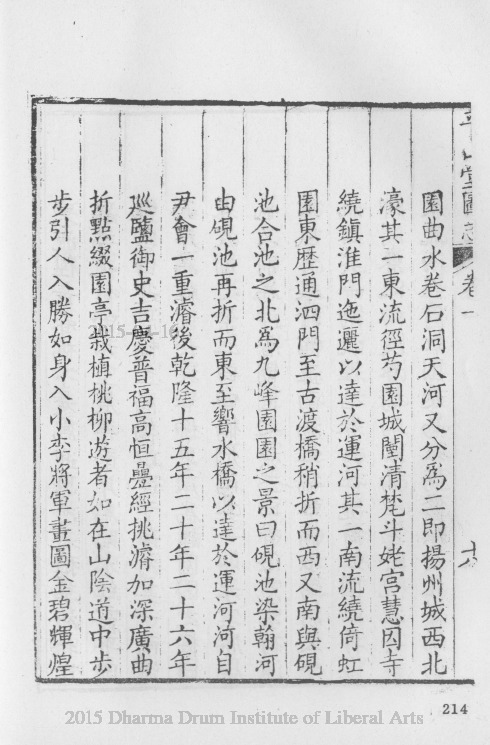 平山堂圖志 卷一 十六
園曲水卷石洞天河又分爲二即揚州城西北
濠其一東流徑芍園城闉清梵斗姥宮慧因寺
繞鎮淮門迤邐以達於運河其一南流繞倚虹
園東歷通泗門至古渡橋稍折而西又南與硯
池合池之北爲九峰園園之景曰硯池染翰河
由硯池再折而東至響水橋以達於運河河自
尹會一重濬後乾隆十五年二十年二十六年
廵鹽御史吉慶普福高恒疊經挑濬加深廣曲
折點綴園亭栽植桃柳遊者如在山陰道中步
步引人入勝如身入小李將軍畫圖金碧輝煌
214
2015 Dharma Drum Institute of Liberal Arts